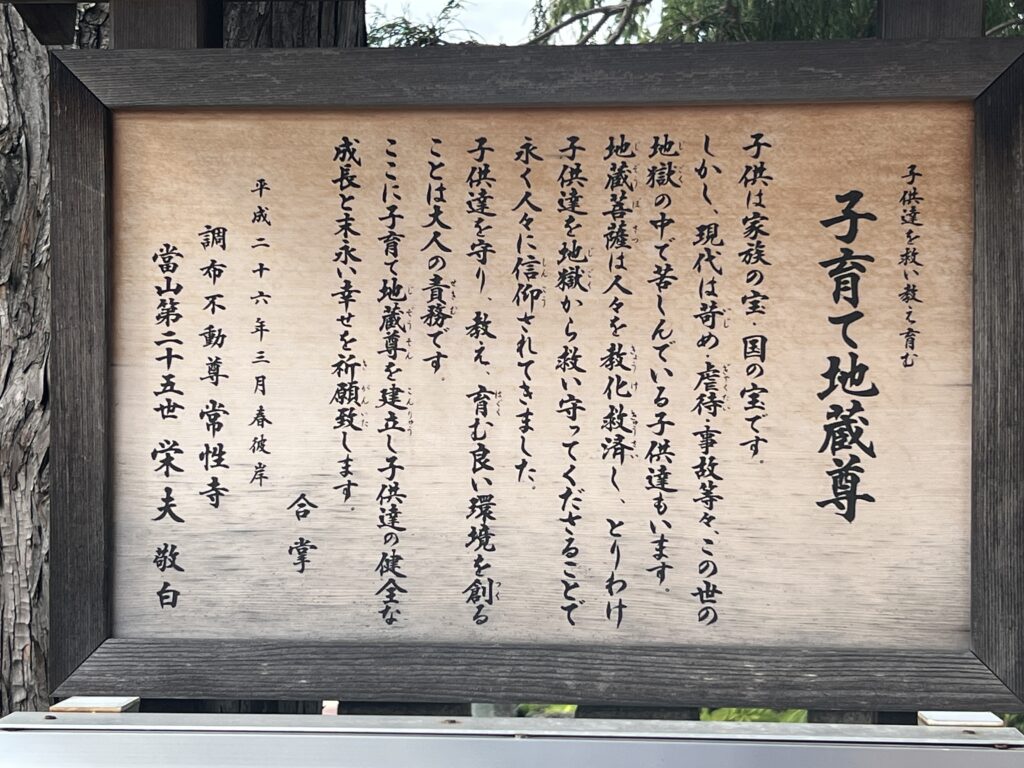 子供達を救い教え育む
子育て地蔵尊
子供は家族の宝・国の宝です。
しかし、現代は苛め・虐待・事故等々、この世の
地獄の中で苦しんでいる子供達もいます。
地蔵菩薩は人々を教化救済し、とりわけ
子供達を地獄から救い守ってくださることで
永く人々に信仰されてきました。
子供達を守り、教え、育む良い環境を創る
ことは大人の責務です。
ここに子育て地蔵尊を建立し子供達の健全な
成長と末永い幸せを祈願致します。
合掌
平成二十六年三月春彼岸
調布不動尊常性寺
當山第二十五世 栄夫 敬白